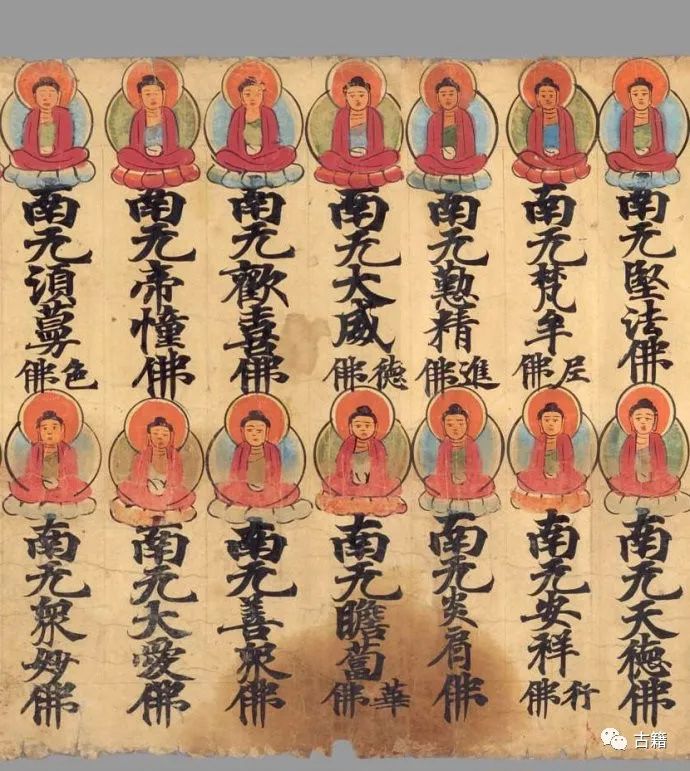 南无堅法佛
南无梵牟尼佛
南无懃精進佛
南无大威德佛
南无歡喜佛
南无帝幢佛
南无須蔓色佛
南无天德佛
南无安祥行佛
南无炎肩佛
南无瞻蔔華佛
南无善衆佛
南无大愛佛
南无衆妙佛
古籍